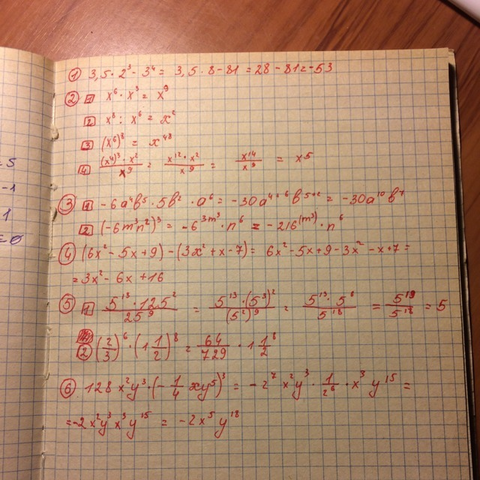 5
-1
1
=0
① 3,5 · 2³ - 3⁴ = 3,5 · 8 - 81 = 28 - 81 = -53
② 1 x⁶ · x³ = x⁹
2 x⁸ : x⁶ = x²
3 (x⁶)⁸ = x⁴⁸
4 (x⁴)³ · x² / x⁹ = x¹² · x² / x⁹ = x¹⁴ / x⁹ = x5
③ 1 -6a⁴b⁵ · 5b² · a⁶ = -30a⁴⁺⁶ b⁵⁺² = -30a¹⁰b⁷
2 (-6m³n²)³ = -6³m³ · n⁶ = -216(m³) · n⁶
④ (6x² - 5x + 9) - (3x² + x - 7) = 6x² - 5x + 9 - 3x² - x + 7 =
= 3x² - 6x + 16
⑤ 1 5¹³ · 125² / 25⁹ = 5¹³ · (5³)² / (5²)⁹ = 5¹³ · 5⁶ / 5¹⁸ = 5¹⁹ / 5¹⁸ = 5
2 (2/3)⁶ · (1 1/2)⁸ = 64/729 · 1 1/2⁸
⑥ 128x²y³ · (-1/4 xy⁵)³ = -2⁷x²y³ · 1/2⁶ · x³y¹⁵ =
= -2x²y³x³y¹⁵ = -2x⁵y¹⁸